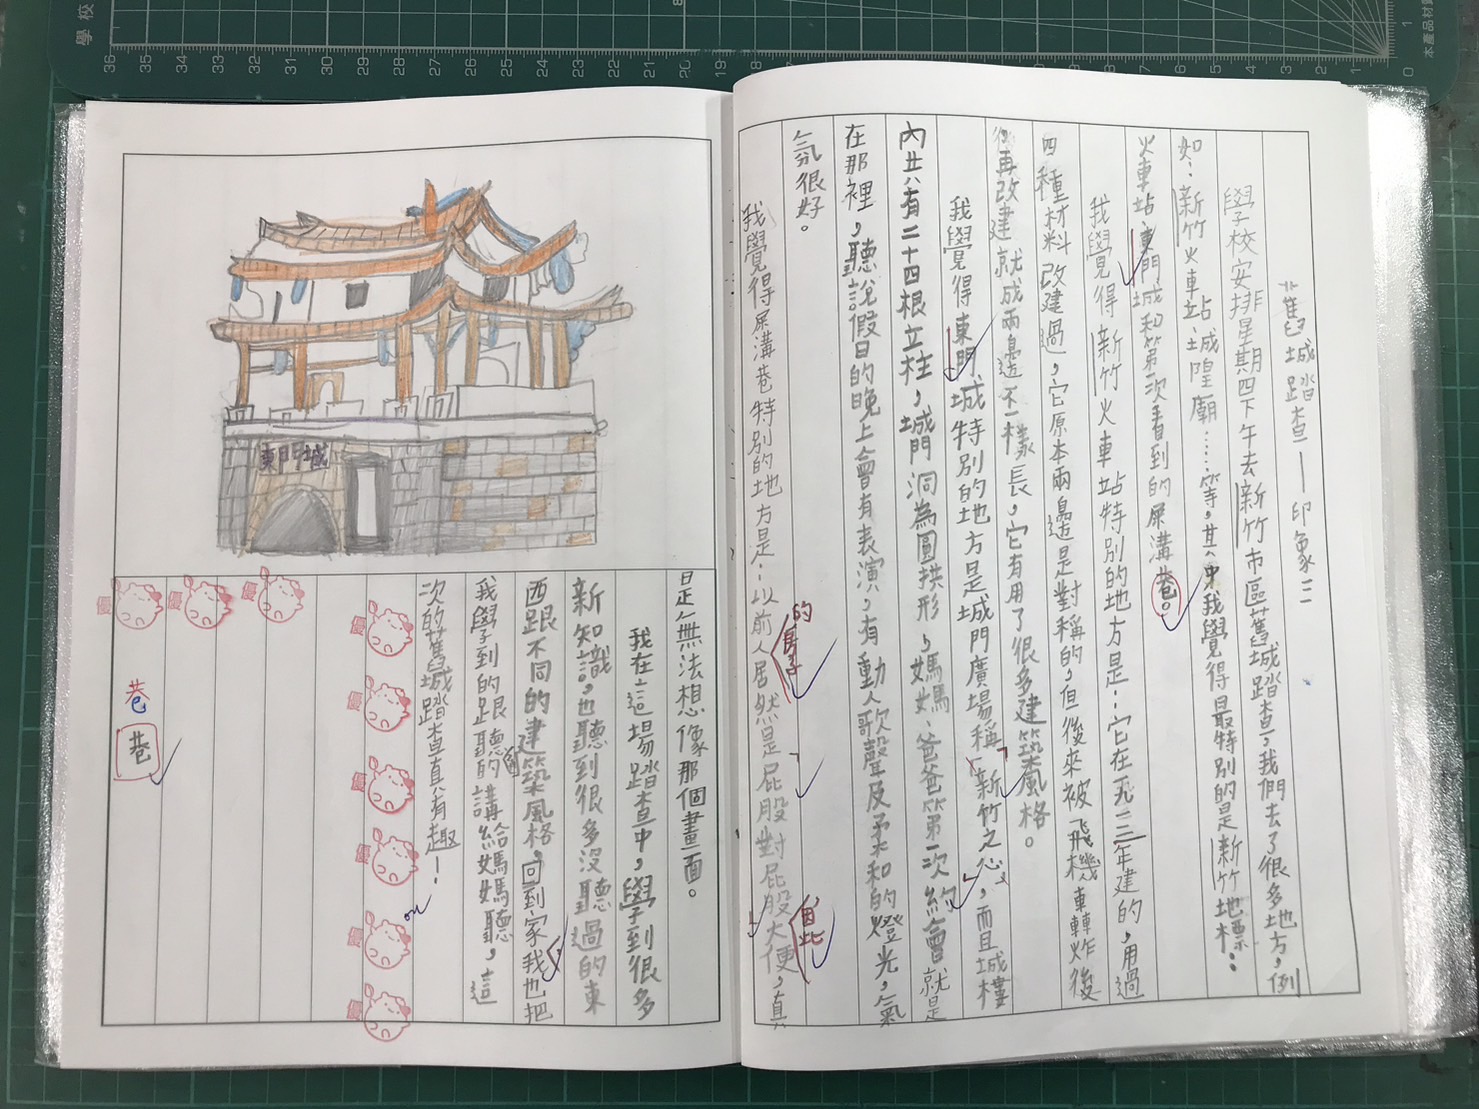 舊城踏查—印象三
學校安排星期四下午去新竹市區舊城踏查，我們去了很多地方，例
如：新竹火車站、城隍廟……等，其中我覺得最特別的是新竹地標：
火車站，東門城和第一次看到的屎溝巷。
我覺得新竹火車站特別的地方是：它在一九一三年建的，用過
四種材料改建過，它原本兩邊是對稱的，但後來被飛機轟炸後
，再改建就成兩邊不一樣長，它有用了很多建築風格。
我覺得東門城特別的地方是城門廣場稱「新竹之心」，而且城樓
內共有二十四根立柱，城門洞為圓拱形，媽媽、爸爸第一次約會就是
在那裡，聽說假日的晚上會有表演，有動人歌聲及柔和的燈光，氣
氛很好。
我覺得屎溝巷特別的地方是：以前人居然是屁股對屁股大便，真
的房子
因此
東門城
是無法想像那個畫面。
我在這場踏查中，學到很多
新知識，也聽到很多沒聽過的東
西跟不同的建築風格，回到家我也把
我學到的跟聽到的講給媽媽聽，這
次的舊城踏查真有趣！
優
優
優
優
優
優
優
優
優
巷
巷
學校
36 35 34 33 32 31 30 29 28 27 26 25 24 23 22 21 20 19
6 5 4 3 2 1 0